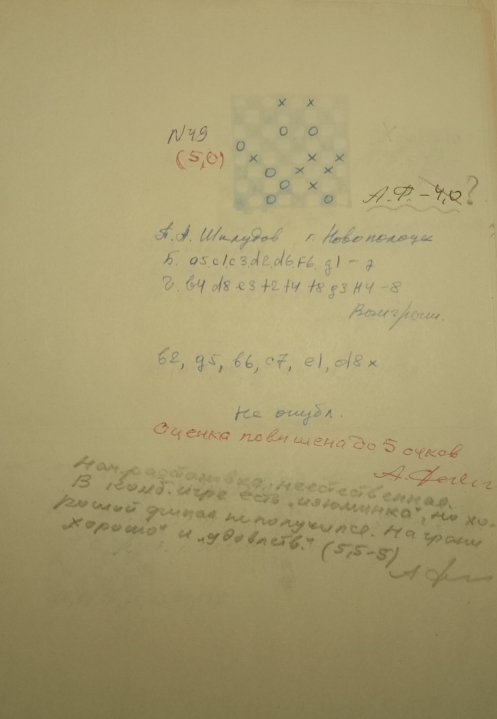 N 49
(5,0)
А.Ф. – 4,0 ?
А.А. Шилудов г. Новополоцк
Б. a5 c1 c3 d2 d6 f6 g1 – 7
Ч. b4 d8 e3 f2 f4 f8 g3 h4 – 8
Выигрыш.
b2, g5, b6, c7, e1, d8 x
Не опубл.
Оценка повышена до 5 очков
Нач. расстановка неестественная.
В комб. игре есть „изюминка", но хо-
рошой финал не получился. На грани
„хорошо" и „удовлетв." (5,5-5)